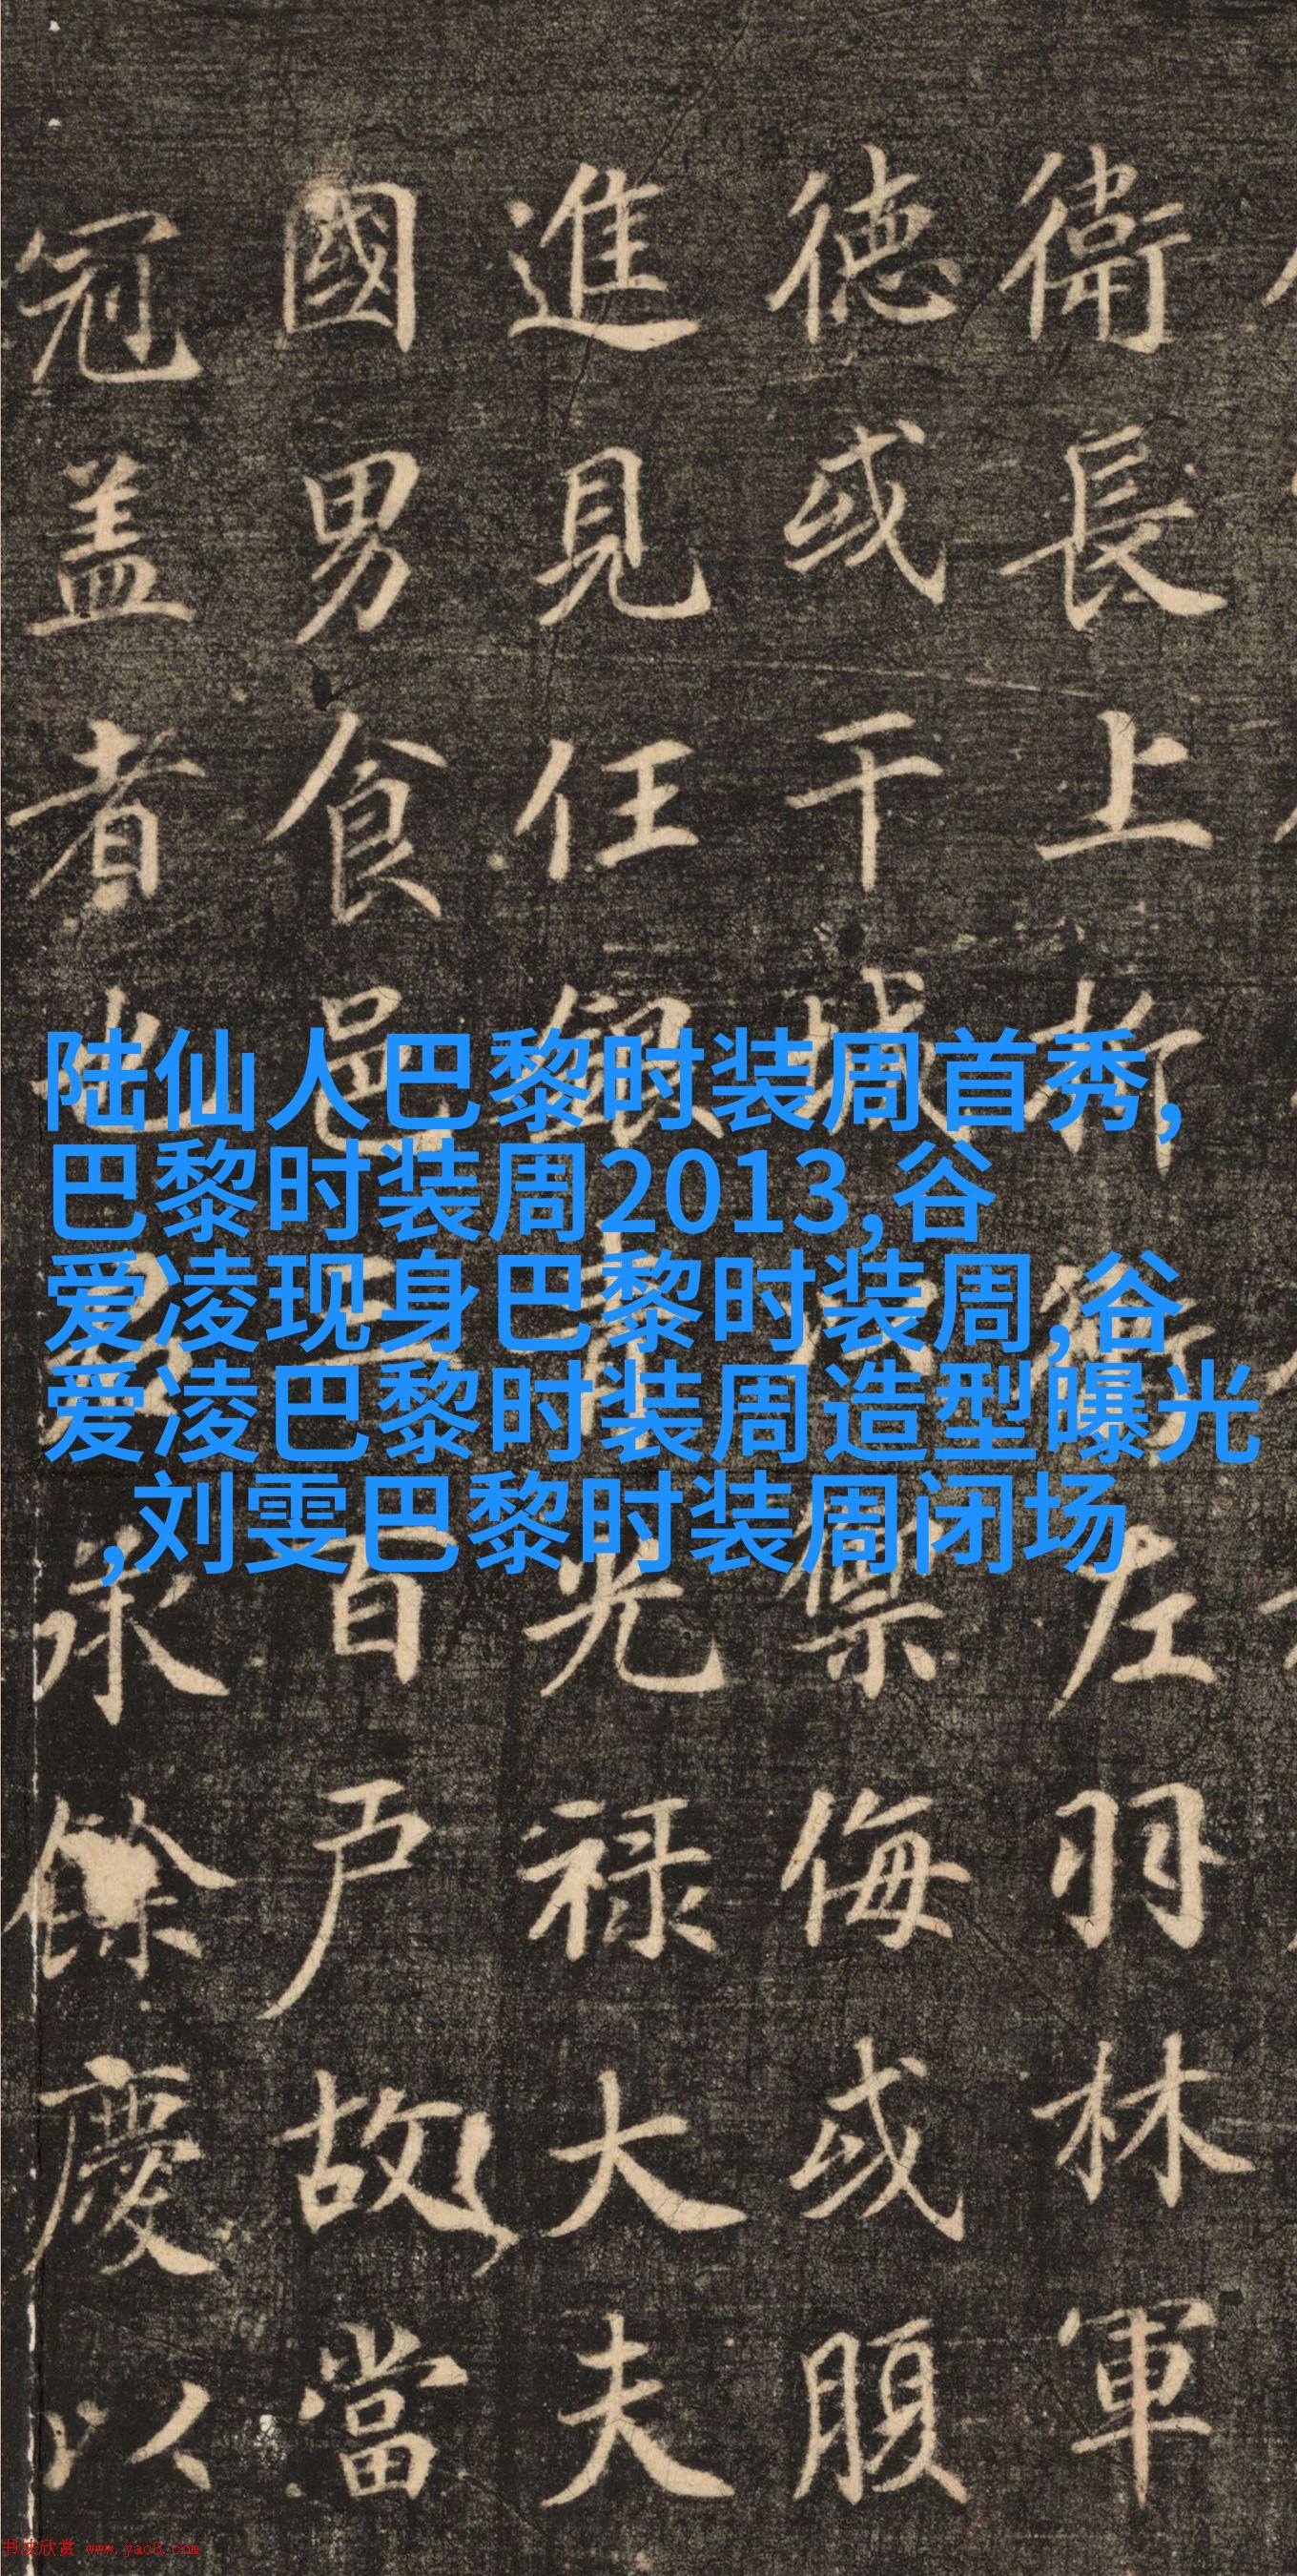 衛長上折衝左羽林軍
德或干城禦侮或腹
進見任銀青光禄大夫
國男食邑三百户故當
冠盖者也承餘慶以
陆仙人巴黎时装周首秀,
巴黎时装周2013,谷
爱凌现身巴黎时装周,谷
爱凌巴黎时装周造型曝光
,刘雯巴黎时装周闭场
书法欣赏 www.yac8.com